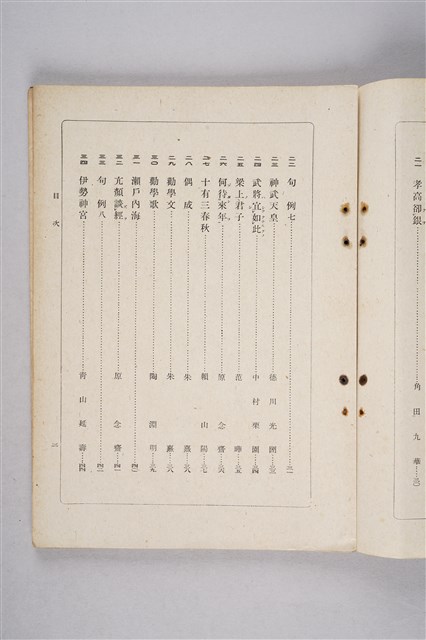 二一 孝高 銀 角田九華
二二 句例七……三一
二三 神武天皇……德川光圀
二四 武將宜如此……中村栗園…三四
二五 梁上君子……范曄…三五
二六 何待來年……原念齋…三六
二七 十有三春秋……賴山陽…三七
二八 偶成……朱熹…三八
二九 勸學文……朱熹…三八
三〇 勸學歌……陶淵明…三九
三一 瀨戶內海
三二 亢顏談經……原念齋…四一
三三 句例八……四二
三四 伊勢神宮……青山延壽…四四
目次